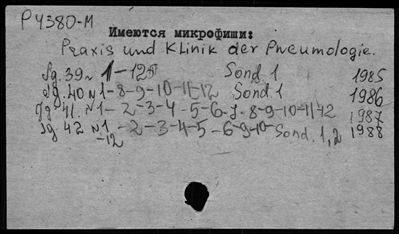 РУ380-М
Имеются микрофиши:
Praxis und Klinik der Pneumologie.
Jg. 39 N 1-12 Sond. 1 1985
Jg. 40 N 1-8-9-10-11-12 Sond. 1 1986
Jg. 41. N 1-2-3-4-5-6-7-8-9-10-11-12 1987
Jg 42 N 1-2-3-4-5-6-9-10- Sond. 1,2 1988
-12